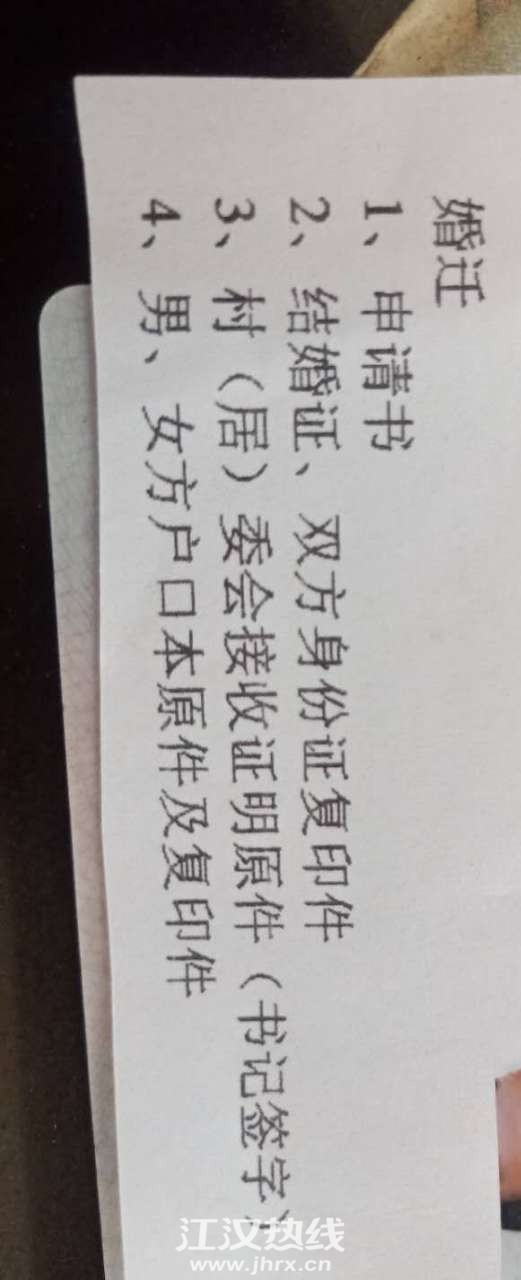 婚迁
1、申请书
2、结婚证、双方身份证复印件
3、村（居）委会接收证明原件（书记签字）
4、男、女方户口本原件及复印件
江汉热线
www.jhrx.cn